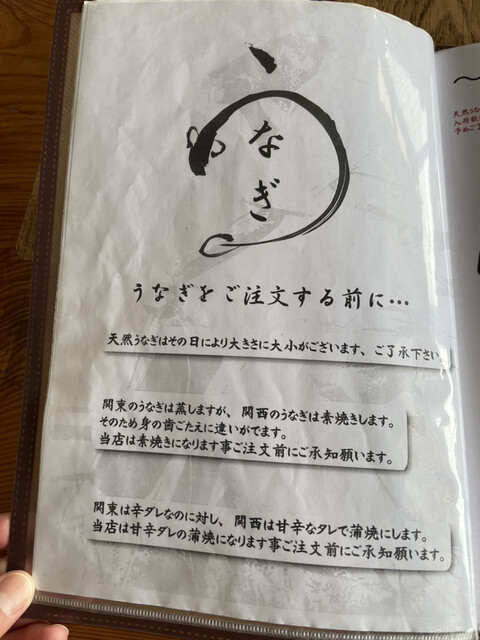 うなぎ
うなぎをご注文する前に…
天然うなぎはその日により大きさに大小がございます、ご了承下さい。
関東のうなぎは蒸しますが、関西のうなぎは素焼きします。
そのため身の歯ごたえに違いがでます。
当店は素焼きになります事ご注文前にご承知願います。
関東は辛ダレなのに対し、関西は甘辛なタレで蒲焼にします。
当店は甘辛ダレの蒲焼になります事ご注文前にご承知願います。
天然うな
入荷
予めご了